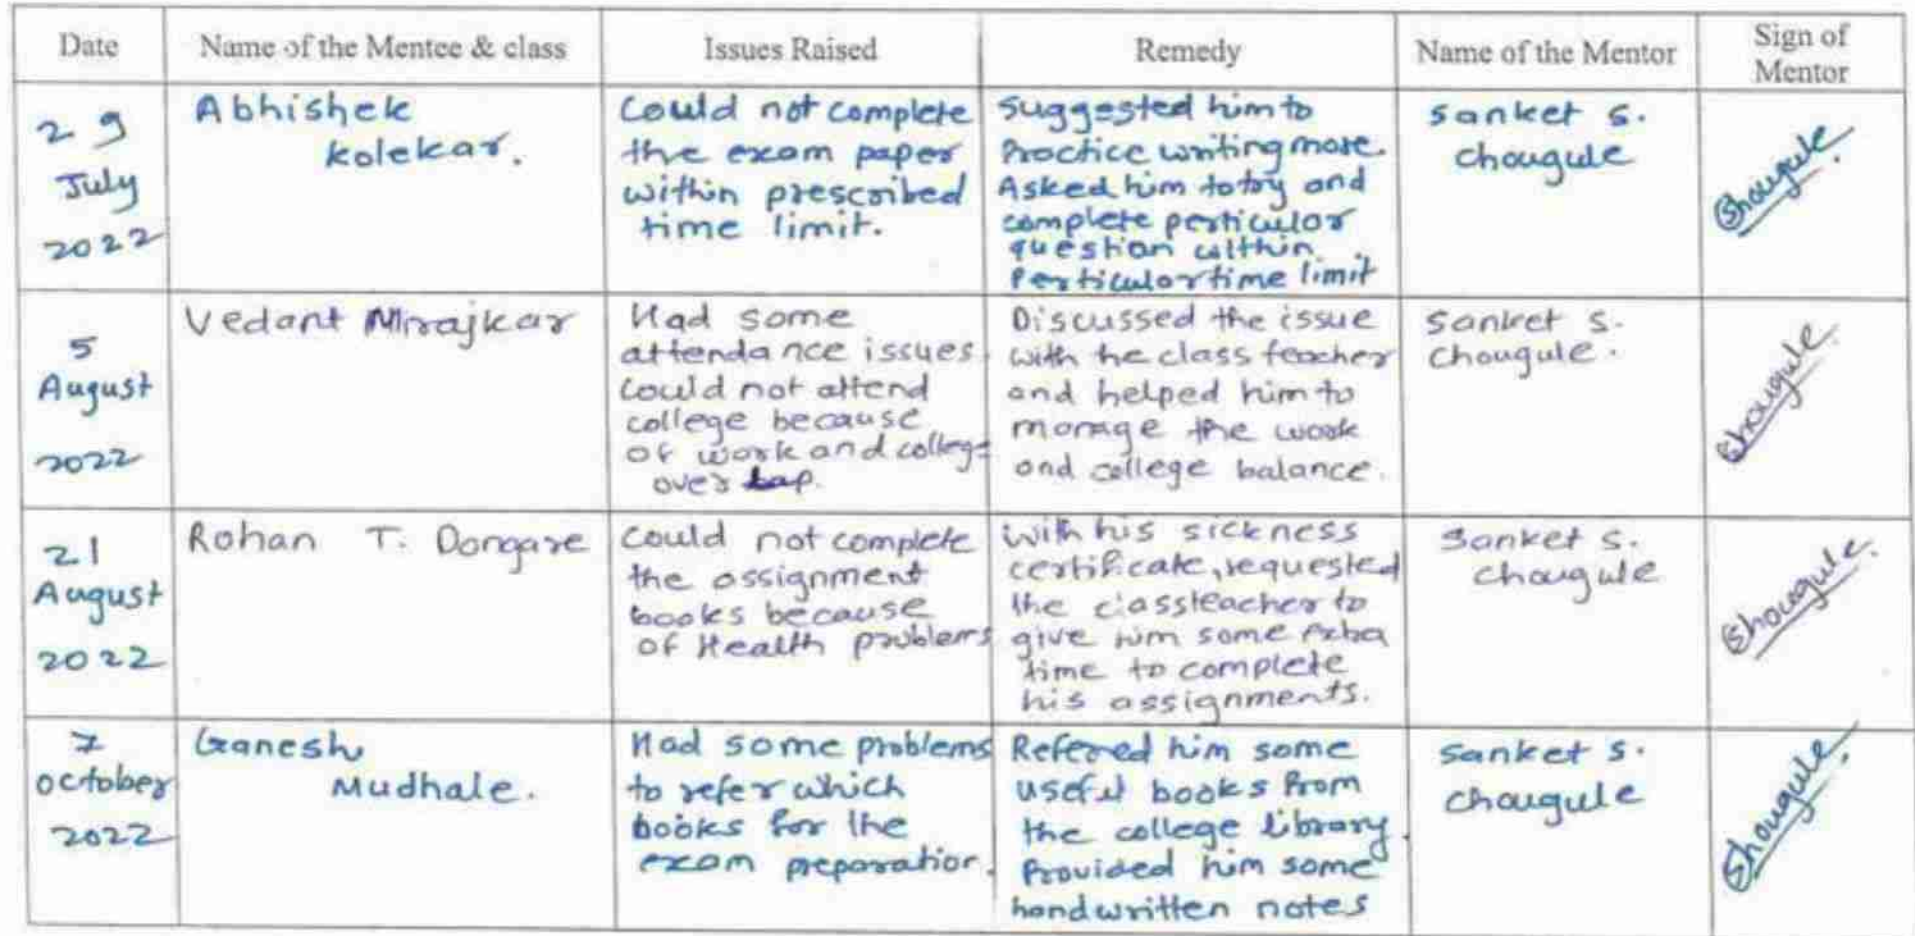 Date Name of the Mentee & class Issues Raised Remedy Name of the Mentor Sign of
Mentor
29
July
2022
Abhishek
Kolekar.
Could not complete
the exam paper
within prescribed
time limit.
Suggested him to
Practice writing more.
Asked him to try and
complete perticular
question within
Perticular time limit
Sanket S.
Chougule
Chougule.
5
August
2022
Vedant Mirajkar
Had some
attendance issues.
Could not attend
college because
of work and college
over lap.
Discussed the issue
with he class teacher
and helped him to
manage the work
and college balance.
Sanket S.
Chougule.
Chougule.
21
August
2022
Rohan T. Dongare
Could not complete
the assignment
books because
of Health problems
With his sickness
certificate, requested
the classteacher to
give him some extra
time to complete
his assignments.
Sanket S.
Chougule
Chougule.
7
October
2022
Ganesh
Mudhale.
Had some problems
to refer which
books for the
exam preparation.
Refered him some
useful books from
the college library.
Provided him some
handwritten notes
Sanket S.
Chougule
Chougule.